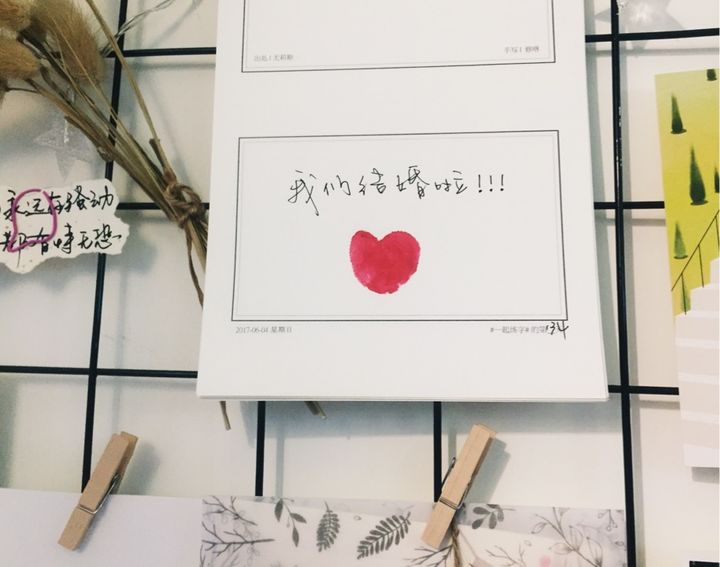 出处 | 尤莉斯
手写 |
我们结婚啦!!!
2017-06-04 星期日
#一起练字# 的第134
永远在骚动
都有恃无恐